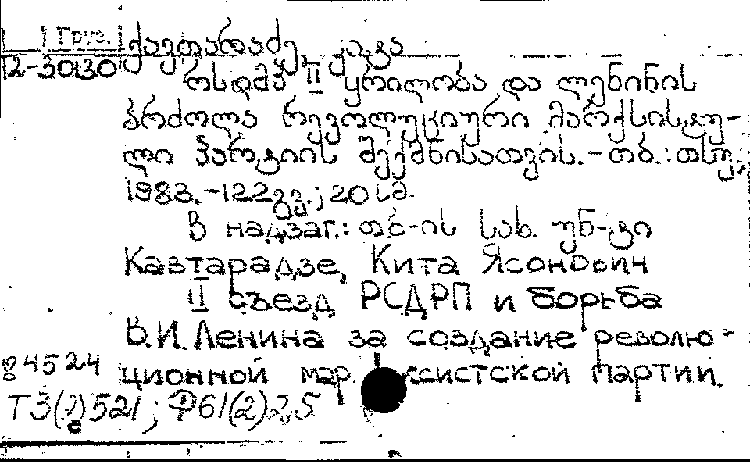 Груз. ქავთარაძე, კიტა
2-30130
რსდმპ II ყრილობა და ლენინის
ბრძოლა რევოლუციური მარქსისტუ-
ლი პარტიის შექმნისათვის.-თბ.:თსუ,
1983.-122გვ.;20სმ.
В надзаг.: თბ-ის სახ. უნ-ტი
Кавтарадзе, Кита Ясонович
II съезд РСДРП и борьба
В.И.Ленина за создание револю-
84524 ционной марксистской партии.
Т3(2)521; Ф61(2)25